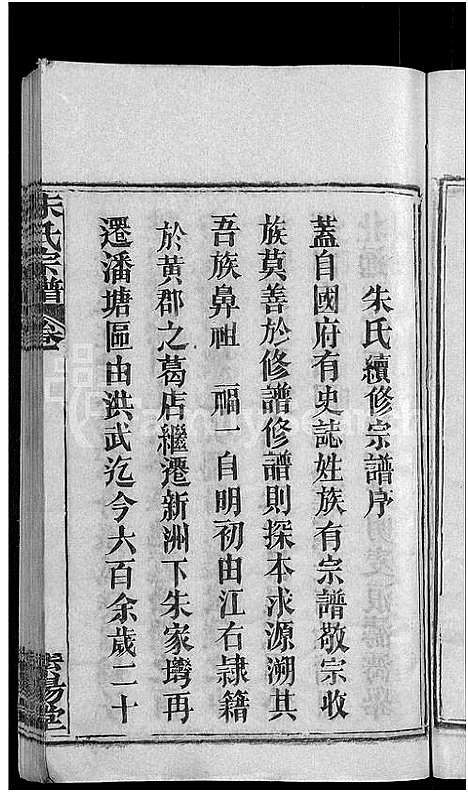 朱氏續修宗譜序
蓋自國府有史誌姓族有宗譜敬宗收
族莫善於修譜修譜則探本求源溯其
吾族鼻祖 福一自明初由江右隸籍
於黃郡之葛店繼遷新洲下朱家塆再
遷潘塘區由洪武迄今六百余歲二十
朱氏宗譜
卷一